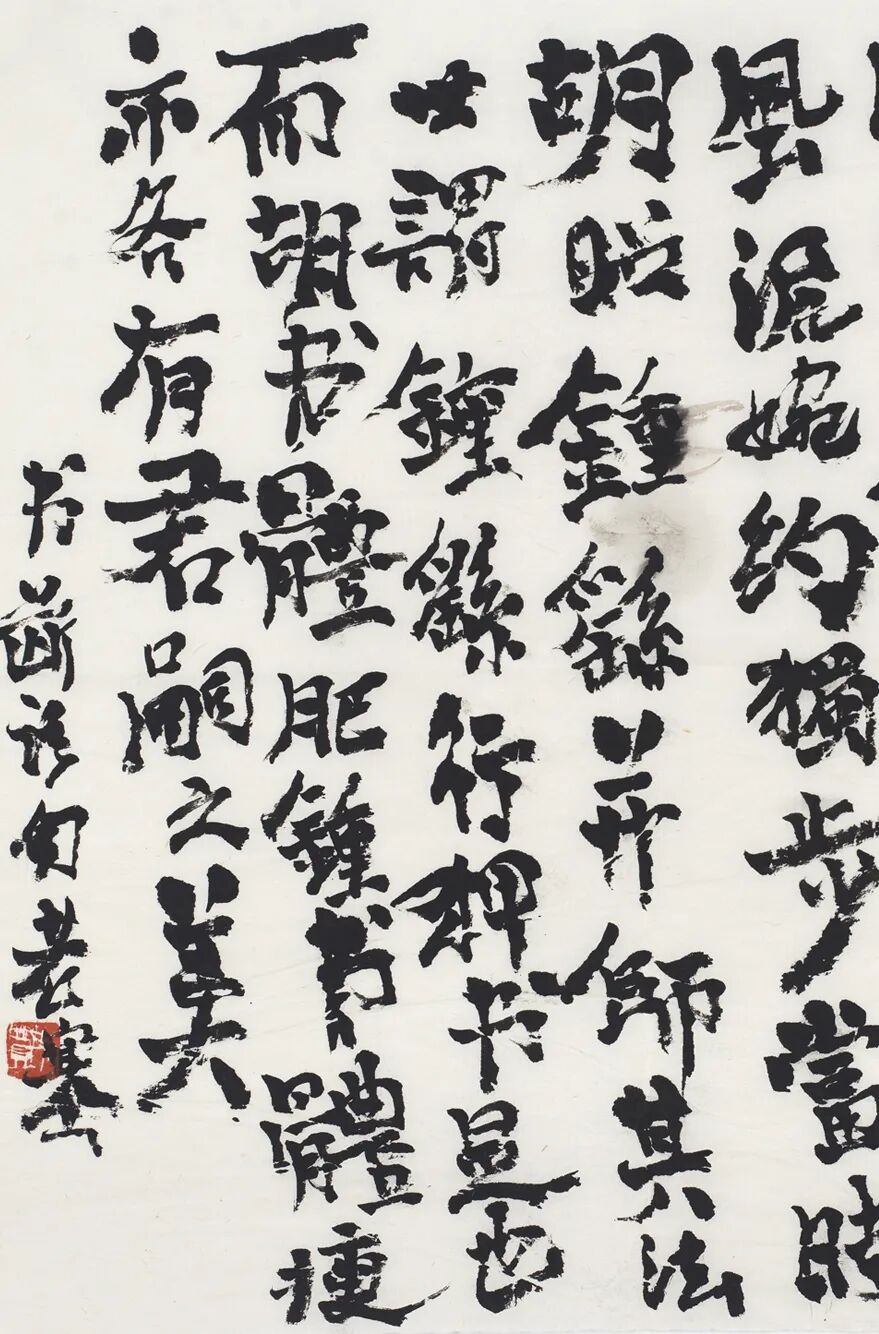 風流婉約獨步當時
胡昭鍾繇並師其法
世謂鍾繇行狎书是也
而胡书體肥鍾書體瘦
亦各有君嗣之美
书斷語句